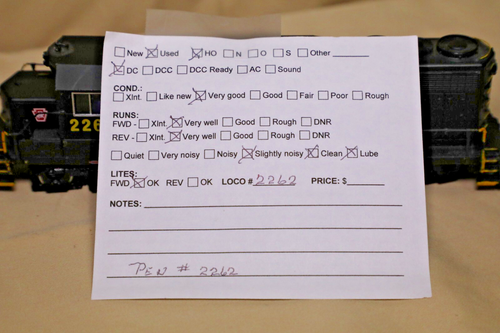 New Used HO N O S Other
DC DCC DCC Ready AC Sound
COND.:
Xlnt. Like new Very good Good Fair Poor Rough
RUNS:
FWD - Xlnt. Very well Good Rough DNR
REV - Xlnt. Very well Good Rough DNR
Quiet Very noisy Noisy Slightly noisy Clean Lube
LITES:
FWD OK REV OK LOCO # 2262 PRICE: $
NOTES:
PEN # 2262
226